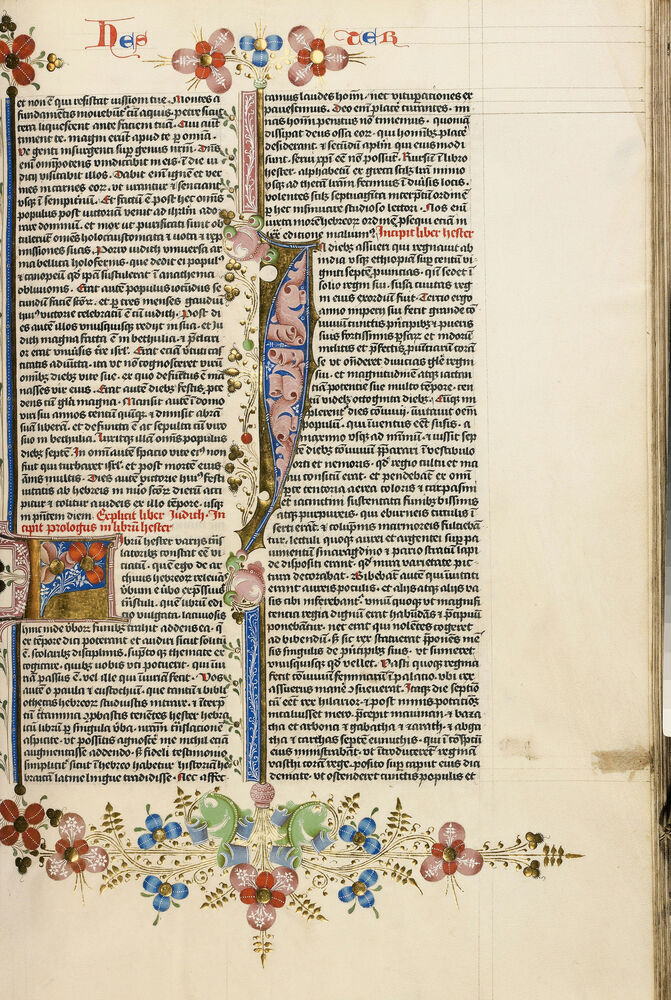 Hes ter
et non ē qui resistat iussioni tue. Montes a
fundamētis mouebūt cū aquis. petre sicut
cera liquescent ante faciem tuā. Qui autē
timent te. magni erūt apud te p omnia.
Ve genti insurgenti sup genus meū. Dn̄s
eni omīpotens uindicabit in eis. ī die iu
dicij uisitabit illos. Dabit eni ignē et ver
mes in carnes eor. ut urantur et senciant
usq ī sempiternū. Et factū ē post hec omīs
populus post uictoriā venit ad ihrlm ado
rare dominū. et mox ut purificati sunt ob
tulerūt omēs holocaustomata et uota et rep
missiones suas. Porro iudith uniuersa ar
ma bellica holofernis. que dedit ei popul9
et canopeū qd ipsa sustulerat ī anathema
obliuionis. Erat autē populus iocūdus se
cundū faciē scōr. et p tres menses gaudiū
hui9 uictorie celebratū ē cū iudith. Post di
es autē illos unusquisque redijt in sua. et Iu
dith magna facta ē in bethulia. et p̄clari
or erat uniūsis tre isrl. Erat eciā uirtuti cas
titatis adiūcta. ita ut nō cognosceret virū
omībs diebs vite sue. ex quo defūctus ē ma
nasses vir eius. Erat autē diebs festis p̄ce
dens cū glīa magna. Mansit autē ī domo
viri sui annos centū quīq. et dimisit abrā
suā liberā. et defuncta ē ac sepulta cū viro
suo in bethulia. Luxitq illā omīs populus
diebs septē. In omī autē spacio vite ei9 non
fuit qui turbaret isrl. et post mortē eius
annis multis. Dies autē victorie hui9 festi
uitatis ab hebreis in nūo scōr dierū acci
pitur et colitur a iudeis ex illo tēpore. usq
in pn̄tem diem. Explicit liber Judith. In
cipit prologus in librū hester
Librū hester varijs trās
latoribs constat eē vi
ciatū. quē ego de ar
chiuis hebreor releuās
verbum e verbo expssius
trāstuli. quē librū edi
cio vulgata. laciniosis
hinc inde verbor funibs trahit addens ea. q
ex tēpore dici poterant et audiri. sicut solitū
ē. scolaribs disciplinis. sūpto themate ex
cogitare. quibs uobis uti potuerit. qui iniu
riā passus ē. vel ille qui iniuriā fecit. Vos
autē o paula et eustochiū. que tantū et bibli
othecas hebreor studuistis intrare. et interp̄
tū certamina cōprobastis tenētes hester hebrai
cū librū. p singula verba. nr̄am trāslationē
aspicite. ut possitis agnosce me nichil eciā
augmentasse addendo. sed fideli testimonio
simpliciter sicut ī hebreo habetur historiā he
braicā latine lingue tradidisse. Nec affec
tamus laudes hoīm. nec vituperaciones ex
pauescimus. Deo eni placē curantes. mi
nas hoīm penitus nō timemus. quoniā
dissipat deus ossa eor. qui hoībs placē
desiderant. et secūdū apl'm qui eiusmodi
sunt. serui xpī eē nō possūt. Rursū ī libro
hester. alphabetū ex grecis usq minio
usq ad theta lrām fecimus ī diūsis locis.
volentes scilz septuaginta interp̄tū ordinē
p hec insinuare studioso lectori. Nos eni
iuxta morē hebreor ordinē p̄sequi eciā in
lxx edicione maluim9. Incipit liber hester
In diebs assueri qui regnauit ab
india usq ethiopiā sup centū vi
ginti septē puincias. qn sedit ī
solio regni sui. susa ciuitas reg
ni eius exordiū fuit. Tercio ergo
anno imperij sui fecit grande cō
uiuiū cunctis principibs et pueris
suis. fortissimis psar et medorū
inclitis et p̄fectis puinciarū corā
se ut ostenderet diuicias glīe regni
sui. et magnitudinē atq iactanti
ā potentie sue multo tēpore. cen
tū videlz octoginta diebs. Cūq im
plerent dies cōuiuij. inuitauit oēm
populū. qui inuentus eēt susis. a
maximo usq ad minimū. et iussit sep
tē diebs cōuiuiū p̄parari ī vestibulo
orti et nemoris. qd regio cultu et ma
nu consitū erat. et pendebāt ex omi
parte tentoria aerea coloris et carpasini
et iacinctini sustentata funibs bissinis
atq purpureis. qui eburneis circulis ī
serti erāt. et colūpnis marmoreis fulciebā
tur. lectuli quoq aurei et argentei sup pa
uimentū smaragdino et pario stratū lapi
de dispositi erant. qd mira varietate pic
tura decorabat. Bibebāt autē qui inuitati
erant aureis poculis. et alijs atq alijs va
sis cibi inferebant. vinū quoq ut magnifi
centia regia dignū erat habūdās et p̄cipuū
ponebatur. nec erat qui nolētes cogeret
ad bibendū. sed sic rex statuerat p̄ponēs mē
sis singulis de principibs suis. ut sumeret
unusquisq qd vellet. Vasti quoq regina
fecit cōuiuiū feminarū ī palacio. ubi rex
assuerus manē cōsueuerat. Itaq die septīo
cū eēt rex hilarior. et post nimiā potacionē
incaluisset mero. p̄cepit mauman et baza
tha et arbona et gabatha et zarath et abga
tha et carthas septē eunuchis. qui ī cōspectu
eius ministrabāt. ut ītroducerent reginā
vasthi corā rege. posito sup caput eius dia
demate. ut ostenderet cunctis populis et